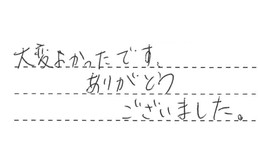 大変よかったです、
ありがとう
ございました。